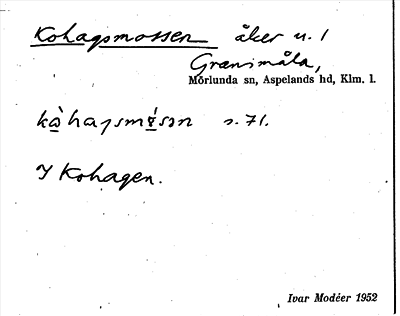 Kohagsmossen åker u. 1
Granimåla,
Mörlunda sn, Aspelands hd, Klm. l.
s. 71.
I Kohagen.
Ivar Modéer 1952